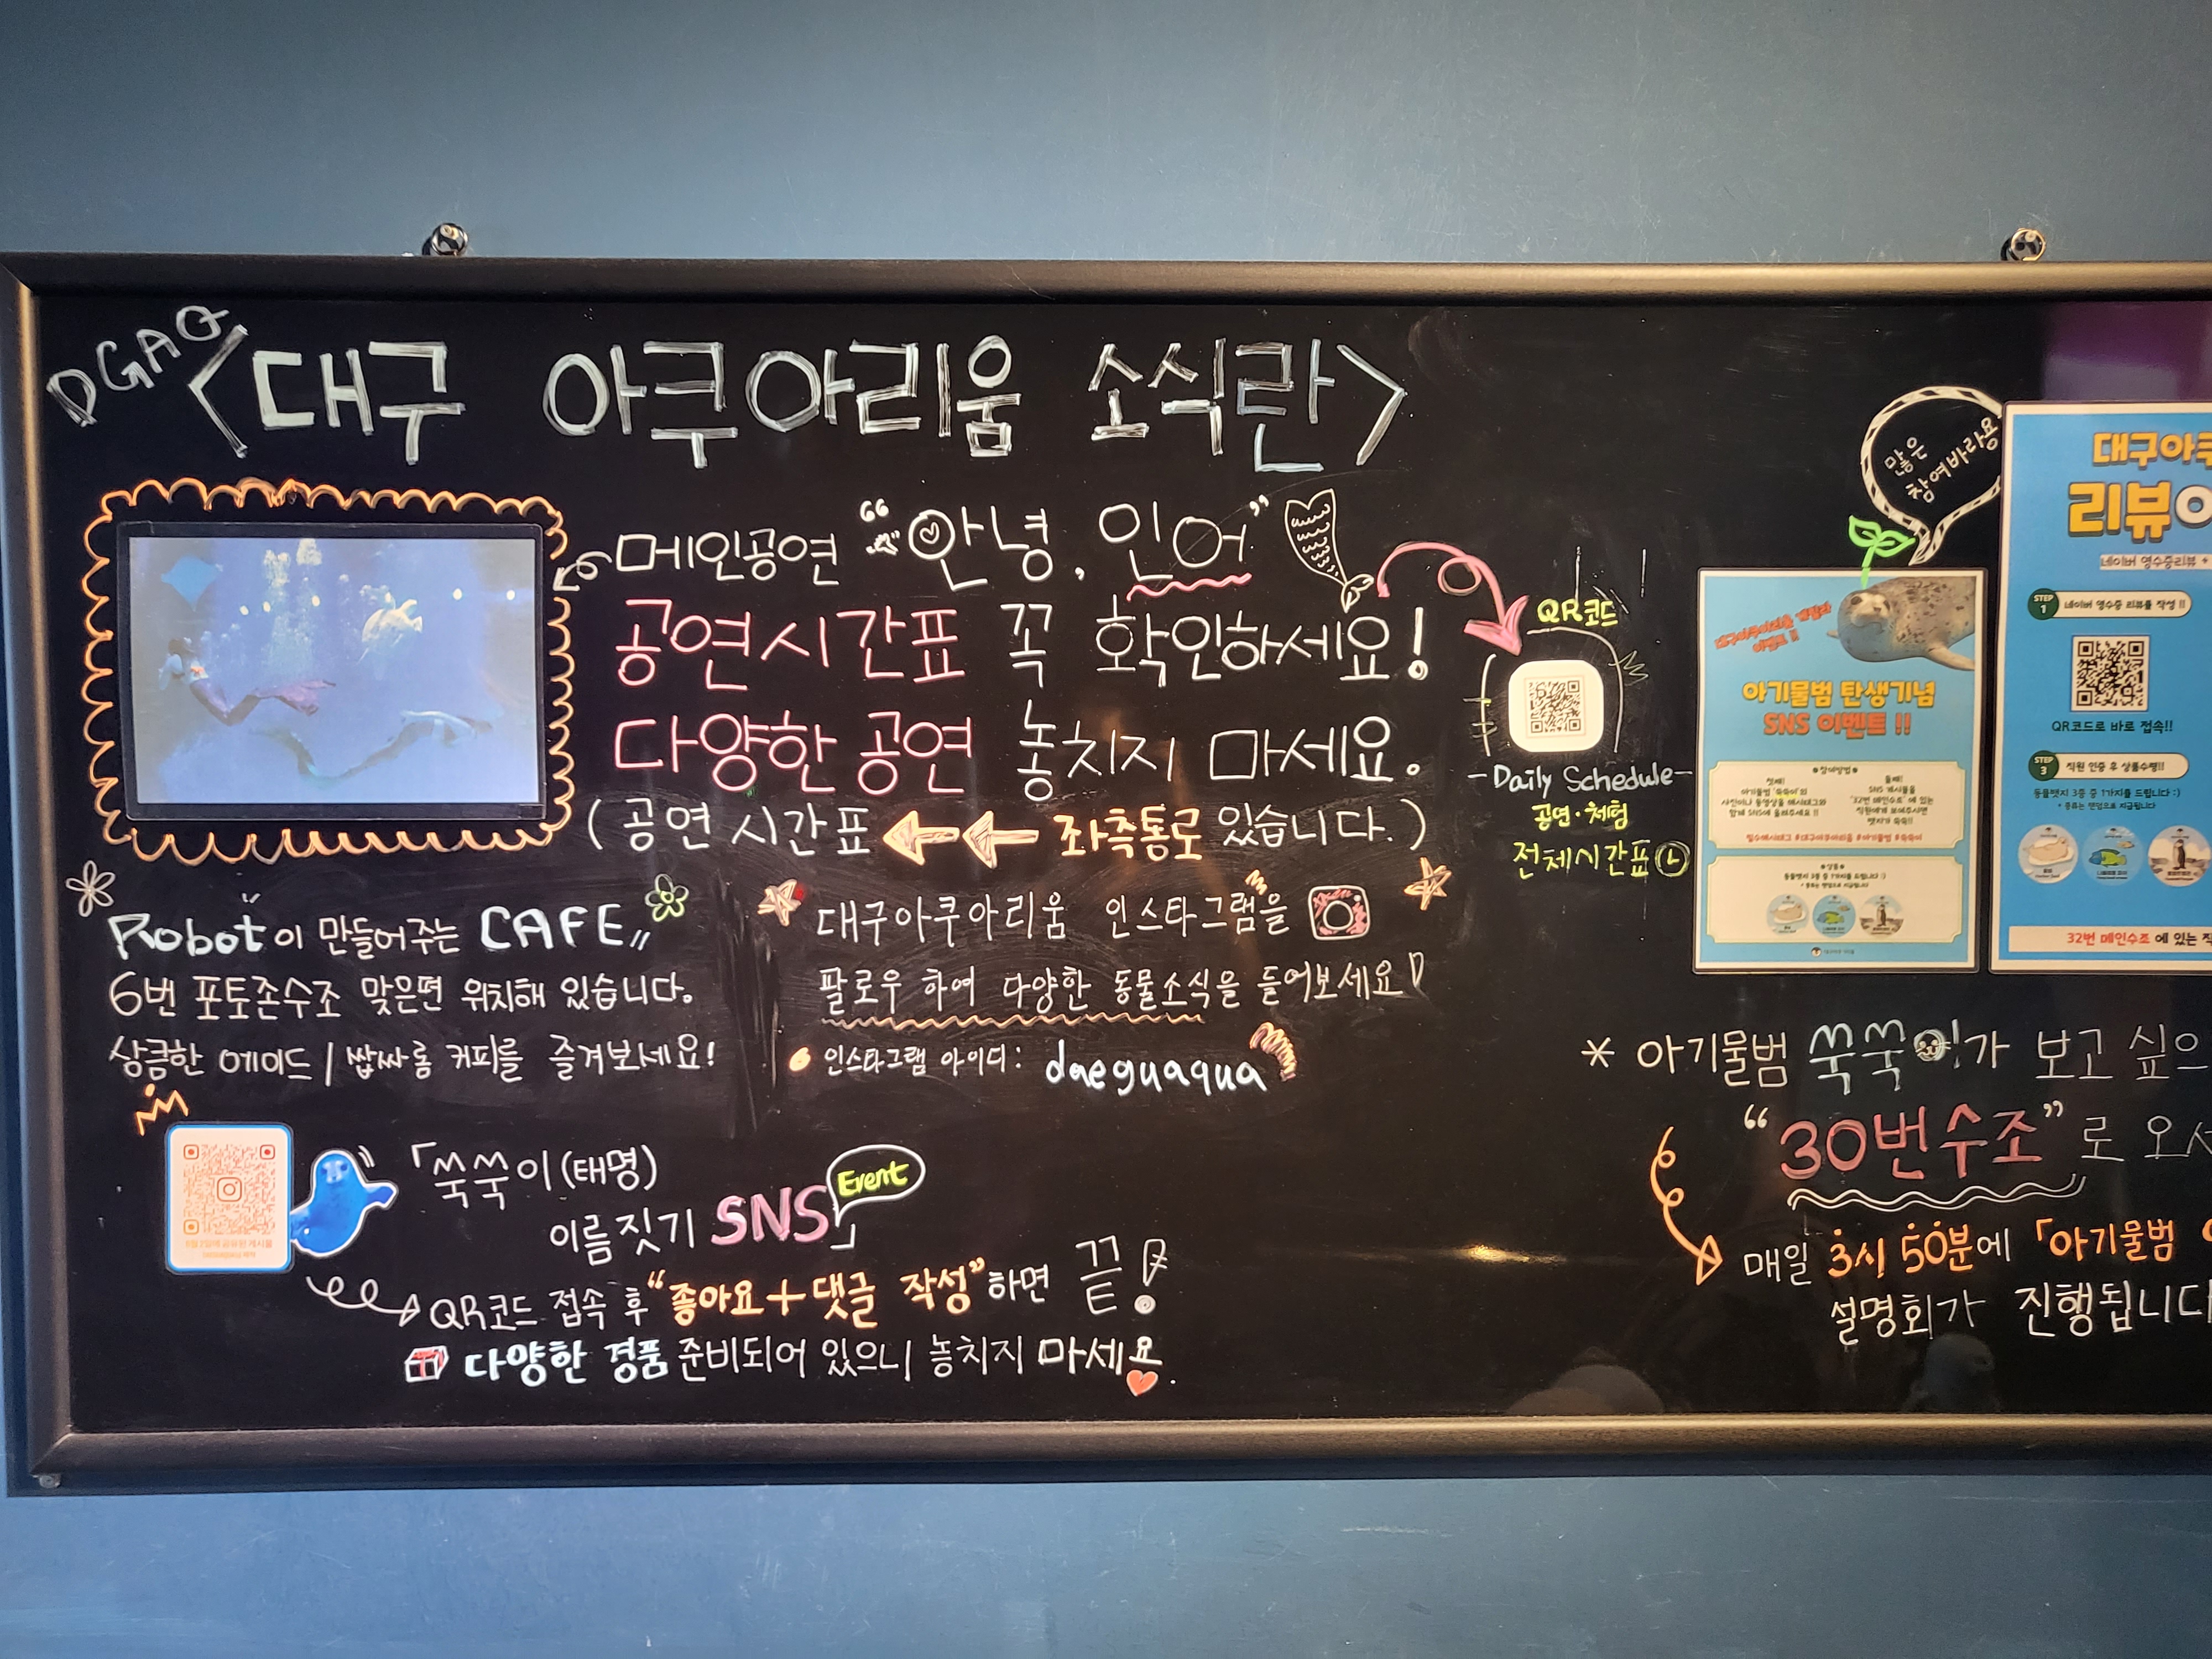 DGAQ
<대구 아쿠아리움 소식란>
메인공연 “안녕, 인어”
공연시간표 꼭 확인하세요!
다양한 공연 놓치지 마세요.
(공연 시간표 ←← 좌측통로 있습니다.)
QR코드
-Daily Schedule-
공연·체험
전체시간표
Robot이 만들어주는 CAFE
6번 포토존수조 맞은편 위치해 있습니다.
상큼한 에이드 / 쌉싸롱 커피를 즐겨보세요!
대구아쿠아리움 인스타그램을
팔로우 하여 다양한 동물소식을 들어보세요
인스타그램 아이디: daeguaqua
「쑥쑥이(태명)
이름짓기 SNS」
Event
QR코드 접속 후 “좋아요+댓글 작성”하면 끝!
다양한 경품 준비되어 있으니 놓치지 마세요.
많은
참여바라용
대구아쿠아리움 개장과
이벤트!!
아기물범 탄생기념
SNS 이벤트!!
필수해시태그 #대구아쿠아리움 #아기물범 #쑥쑥이
동물뱃지 3종 중 1가지를 드립니다 :)
대구아쿠
리뷰
네이버 영수증리뷰 +
STEP
1
네이버 영수증 리뷰를 작성!!
QR코드로 바로 접속!!
STEP
3
직원 인증 후 상품수령!!
동물뱃지 3종 중 1가지를 드립니다 :)
* 종류는 랜덤으로 지급됩니다
32번 메인수조 에 있는
* 아기물범 쑥쑥이가 보고 싶으
“30번수조”로 오
매일 3시 50분에 「아기물범
설명회가 진행됩니다